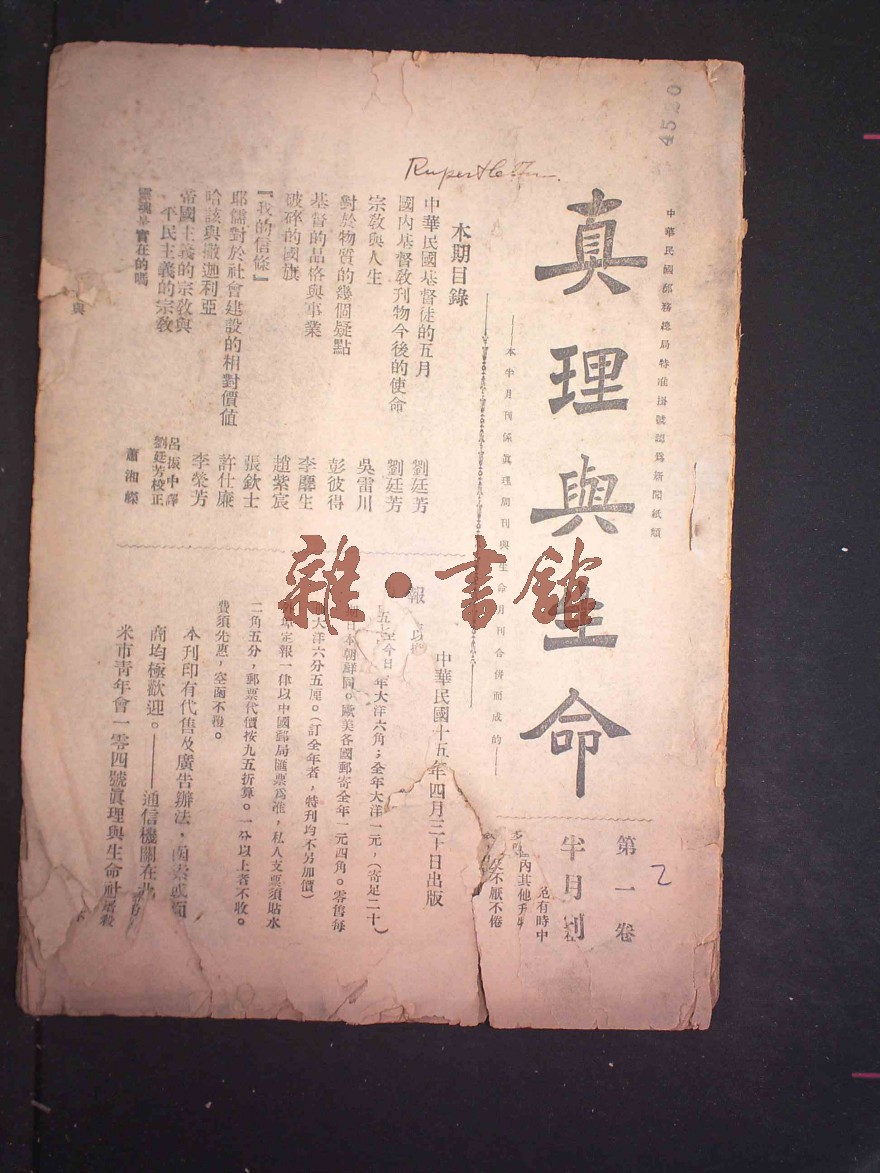 4520
中華民國郵務總局特准掛號認爲新聞紙類
真理與生命
第一卷
2
半月刊
——本半月刊係眞理周刊與生命月刊合併而成的——
本期目錄
中華民國基督徒的五月 劉廷芳
國內基督敎刊物今後的使命 劉廷芳
宗敎與人生 吳雷川
對於物質的幾個疑點 彭彼得
基督的品格與事業 李麞生
破碎的國旗 趙紫宸
『我的信條』 張欽士
耶儒對於社會建設的相對價值 許仕廉
哈該與撒迦利亞 李榮芳
帝國主義的宗敎與
平民主義的宗敎 呂振中譯
劉廷芳校正
靈魂是實在的嗎 蕭湘
與
中華民國十五年四月三十日出版
報
年大洋六角；全年大洋一元，(寄足二十
日本朝鮮同。歐美各國郵寄全年一元四角。零售每
大洋六分五厘。(訂全年者，特刊均不另加價)
定報一律以中國郵局匯票爲准，私人支票須貼水
二角五分，郵票代價按九五折算。一分以上者不收。
費須先惠，空函不復。
本刊印有代售及廣告辦法，函索或面
商均極歡迎。——通信機關在北
米市靑年會一零四號眞理與生命社
有時中
內其他
不厭不倦
雜·書館